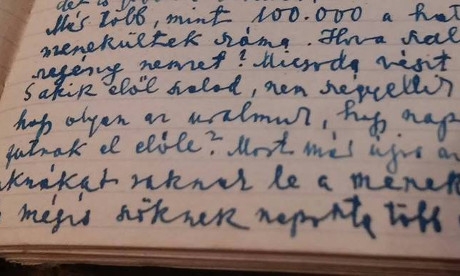 Már több, mint 100.000 a hat
menekültek száma. Hova szal
szegény nemzet? Micsoda
S akik elől szalad, nem szégyellik
hogy olyan az uralmuk, hogy nap
futnak el előle? Most már
aknákat raknak le a menek
mégis szöknek naponta több